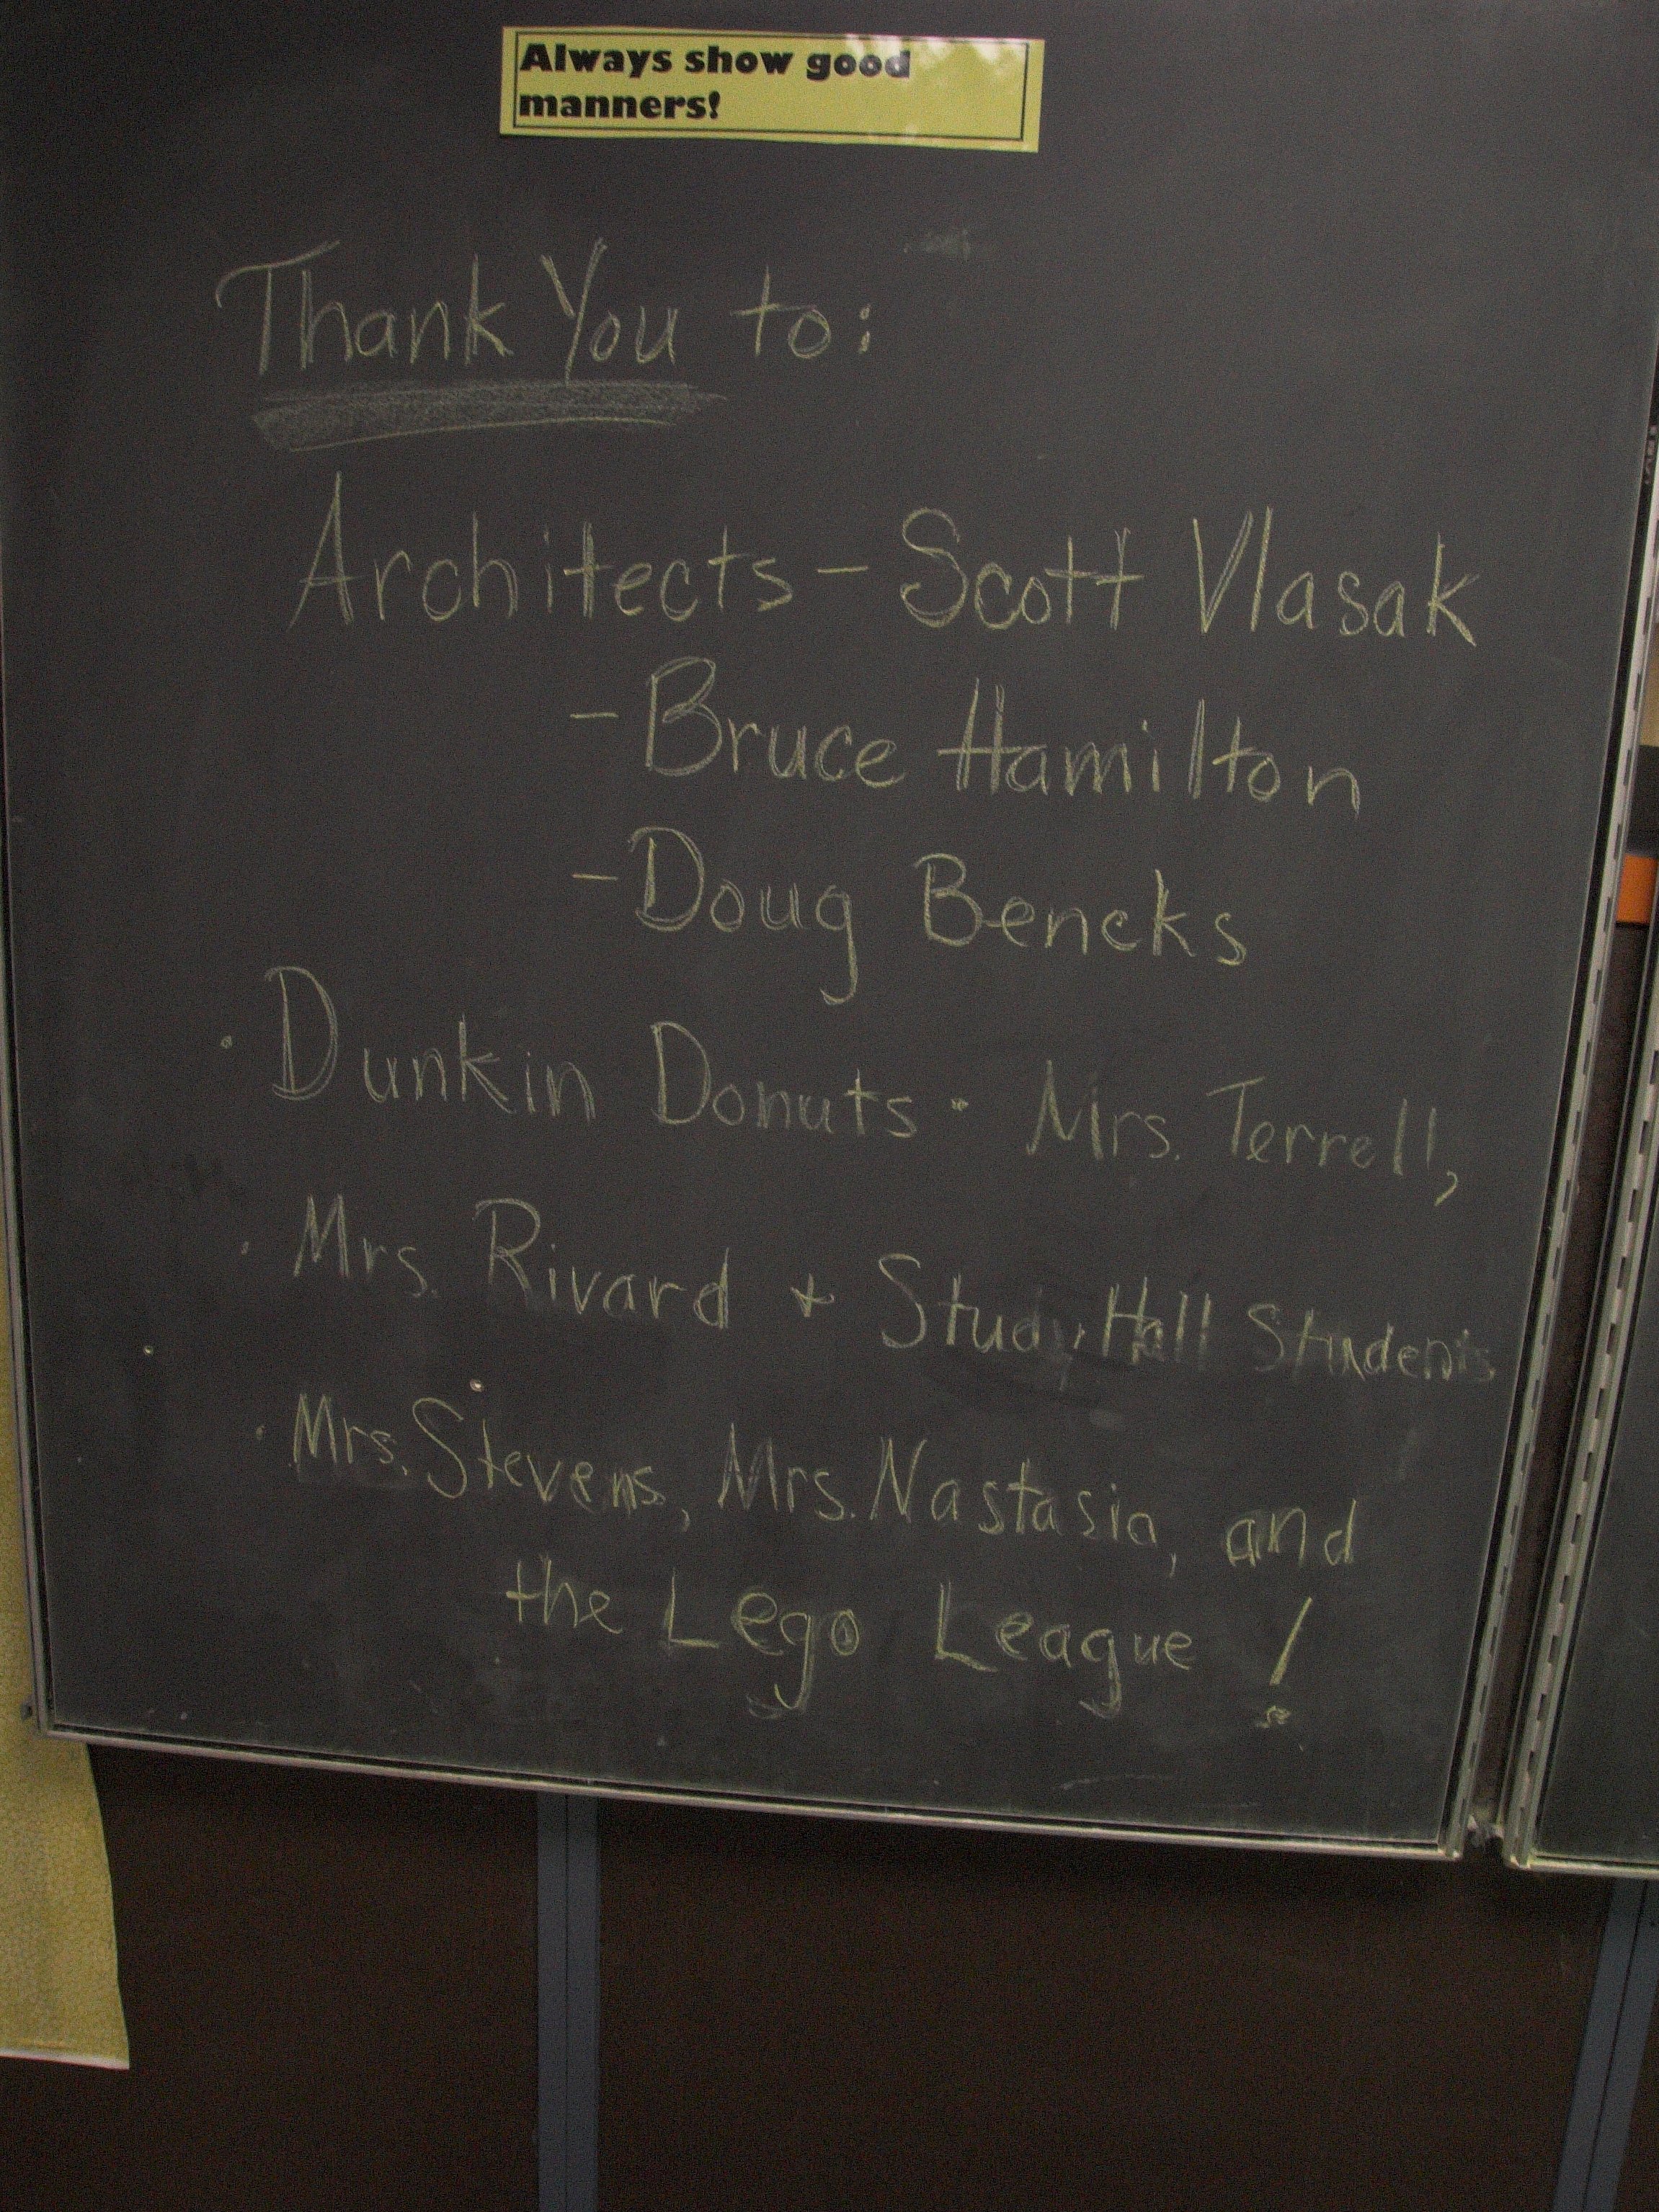 Always show good
manners!
Thank You to:
Architects - Scott Vlasak
- Bruce Hamilton
- Doug Bencks
· Dunkin Donuts · Mrs. Terrell,
· Mrs. Rivard + Study Hall Students
· Mrs. Stevens, Mrs. Nastasia, and
the Lego League!